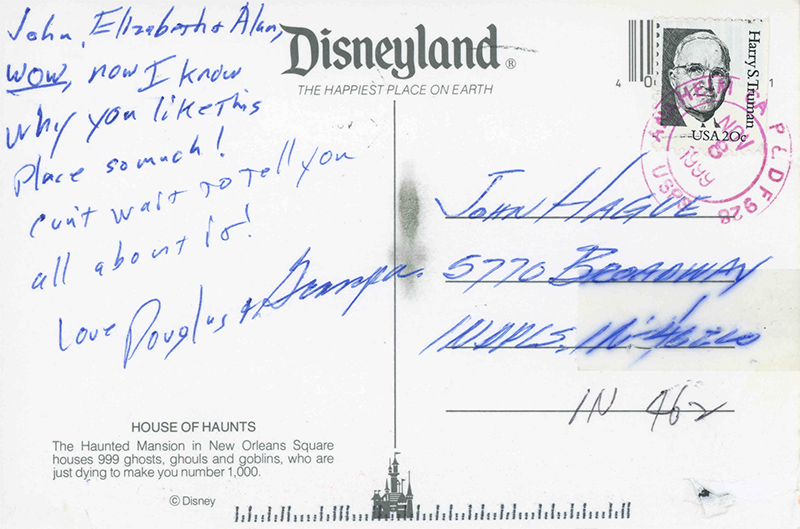 John, Elizabeth & Alan,
WOW, now I know
why you like this
place so much!
can't wait to tell you
all about it!
Love Douglas & Grampa.
HOUSE OF HAUNTS
The Haunted Mansion in New Orleans Square
houses 999 ghosts, ghouls and goblins, who are
just dying to make you number 1,000.
© Disney
Disneyland®
THE HAPPIEST PLACE ON EARTH
4 0 1
Harry S. Truman
USA 20c
ANAHEIM CA P&DF 928
NOV
8
1999
JOHN HAGUE
5770 BROADWAY
INDPLS.
IN 462